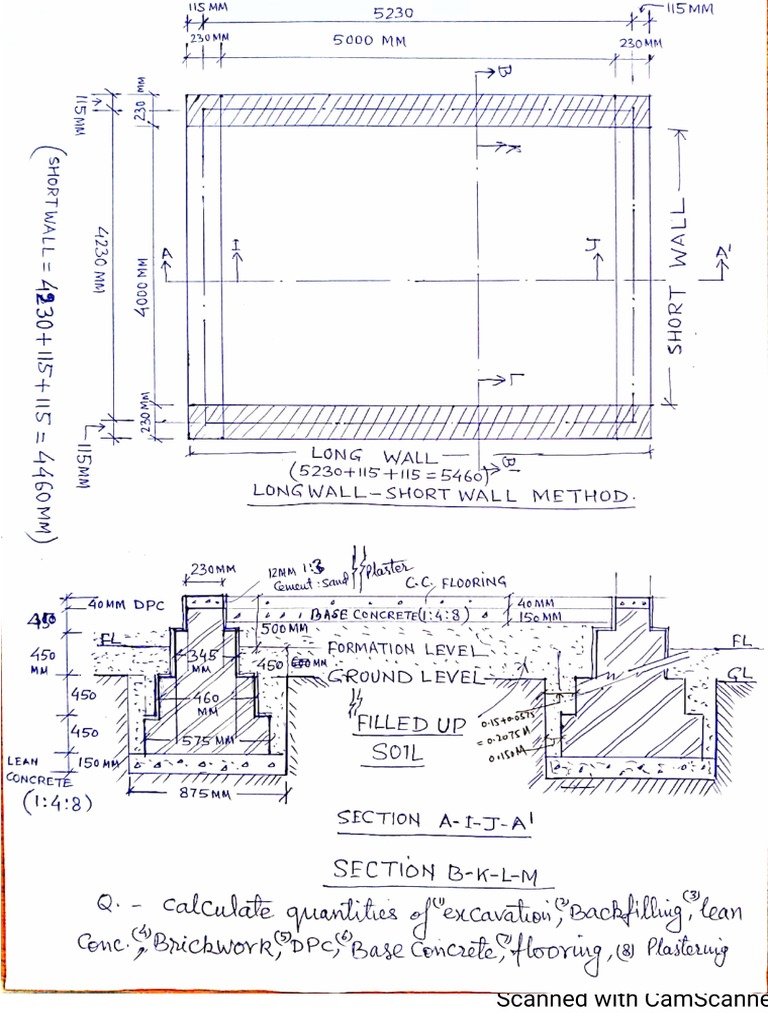 115 MM 5230 115 MM
230 MM 5000 MM 230 MM
B
230 MM
115 MM
K
SHORT WALL
(SHORT WALL = 4230+115+115 = 4460 MM)
4230 MM
4000 MM
A I J A'
L
230 MM
115 MM
LONG WALL
(5230+115+115 = 5460)
LONG WALL - SHORT WALL METHOD.
230 MM
12MM 1:3 Plaster
Cement : sand
C.C. FLOORING
40MM DPC
BASE CONCRETE (1:4:8)
40 MM
150 MM
450
500 MM
FL
345 MM
FORMATION LEVEL
FL
450 MM
450
600 MM
GROUND LEVEL
GL
450
460 MM
FILLED UP
SOIL
0.15+0.0575
= 0.2075 M
0.150M
450
575 MM
LEAN CONCRETE
(1:4:8)
150 MM
875 MM
SECTION A-I-J-A'
SECTION B-K-L-M
Q. - Calculate quantities of (1) excavation, (2) Backfilling, (3) lean
Conc. (4), Brickwork, (5) DPC, (6) Base Concrete, (7) flooring, (8) Plastering
Scanned with CamScanne